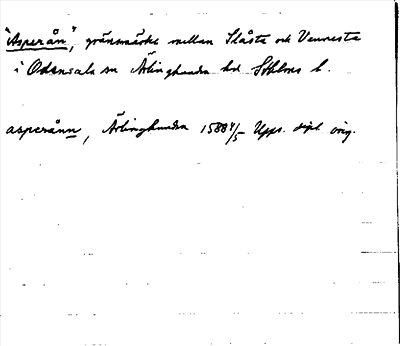 "Asperån", gränsmärke mellan Slåsta och Vannesta
i Odensala sn Ärlinghundra hd Sthlms l.
asperånn, Ärlinghundra 1588 4/5 Upps. dipl. orig.